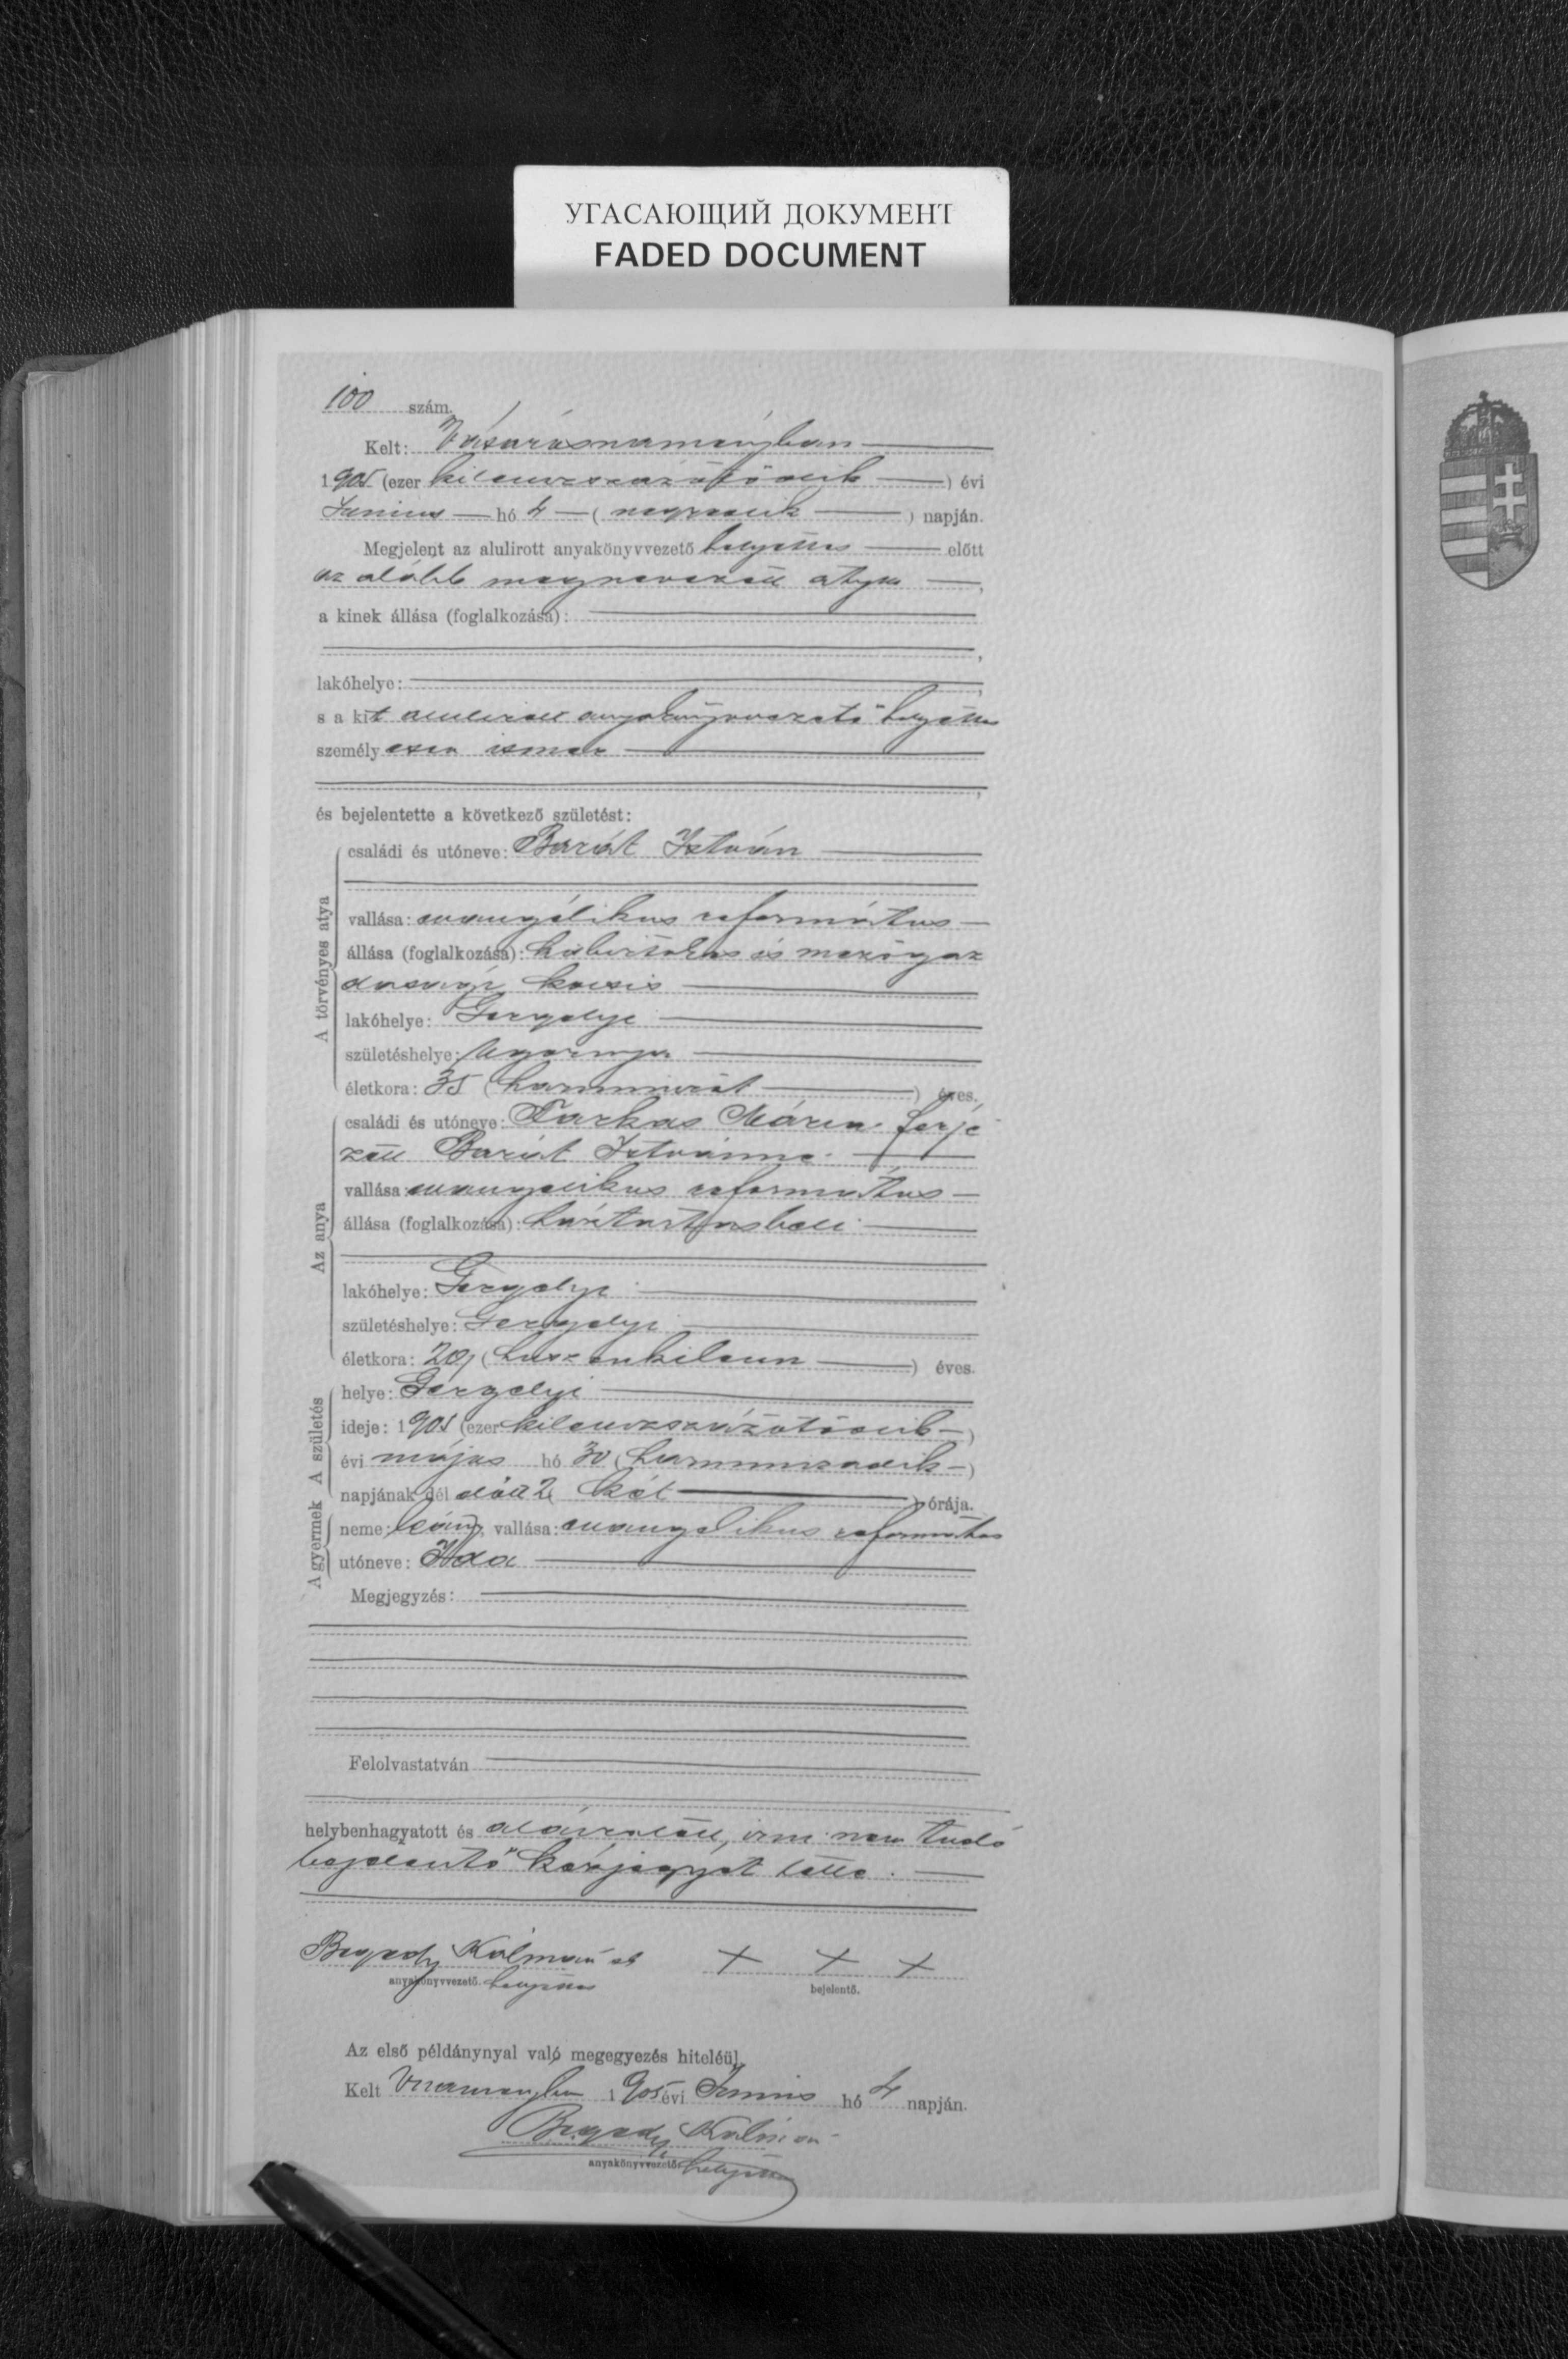 УГАСАЮЩИЙ ДОКУМЕНТ
FADED DOCUMENT
100 szám.
Kelt: Vásárosnaményban
1905 (ezer kilenczszázötödik ) évi
Junius hó 4 ( negyedik ) napján.
Megjelent az alulirott anyakönyvvezető helyettes előtt
az alább megnevezett atya ,
a kinek állása (foglalkozása):
,
lakóhelye: ,
s a kit alulirott anyakönyvvezető helyettes
személyesen ismer
,
és bejelentette a következő születést:
A törvényes atya
családi és utóneve: Barát István
vallása: evangélikus református
állása (foglalkozása): házbirtokos és mezőgaz
dasági kocsis
lakóhelye: Gergelyi
születéshelye: Ugornya
életkora: 35 (harminczöt ) éves.
Az anya
családi és utóneve: Farkas Mária férje
zett Barát Istvánné
vallása: evangelikus református
állása (foglalkozása): háztartásbeli
lakóhelye: Gergelyi
születéshelye: Gergelyi
életkora: 29 (huszonkilencz ) éves.
A születés
helye: Gergelyi
ideje: 1905 (ezer kilenczszázötödik )
évi május hó 30 (harminczadik )
napjának dél előtt 2 ( két ) órája.
A gyermek
neme: leány, vallása: evangelikus református
utóneve: Ida
Megjegyzés:
Felolvastatván
helybenhagyatott és aláiratott, irni nem tudó
bejelentő kézjegyét tette.
Kálmán + + +
anyakönyvvezető. helyettes bejelentő.
Az első példánynyal való megegyezés hiteléül.
Kelt 1905 évi Junius hó 4 napján.
Kálmán
anyakönyvvezető. helyettes